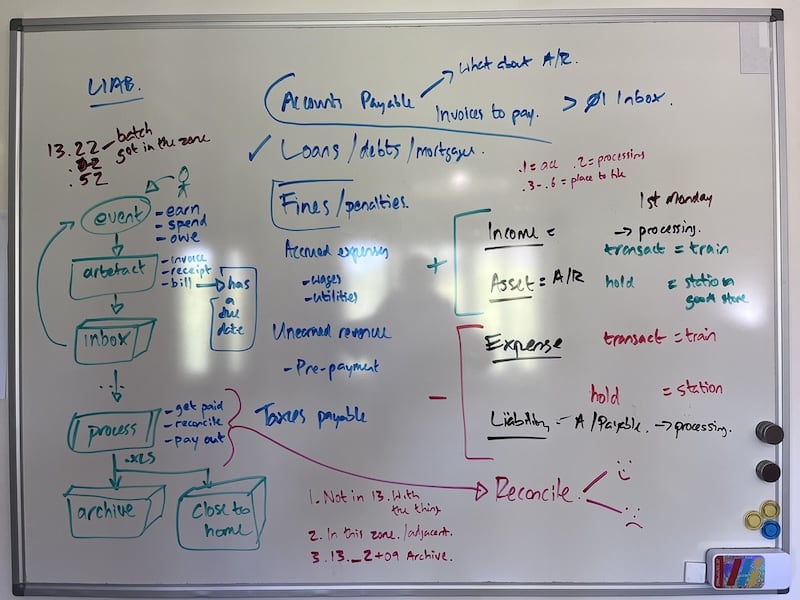 LIAB.
13.22 - batch
got in the zone
.52
event
- earn
- spend
- owe
artefact
- invoice
- receipt
- bill → has
a
due
date
inbox
...
process
- get paid
- reconcile
- pay out
archive
close to
home
Accounts Payable
What about A/R.
Invoices to pay.
> 01 Inbox.
✓ Loans/debts/mortgages.
Fines/penalties.
Accrued expenses
- wages
- utilities
Unearned revenue
- Pre-payment
Taxes payable
.1 = acc .2 = processing
.3-.6 = place to file
1st Monday
+
Income =
→ processing.
transact = train
Asset = A/R
hold = station
goods store
-
Expense
transact = train
hold = station
Liability = A/Payable. → processing.
Reconcile.
1. Not in 13. With
the thing
2. In this zone./adjacent.
3. 13._2+09 Archive.